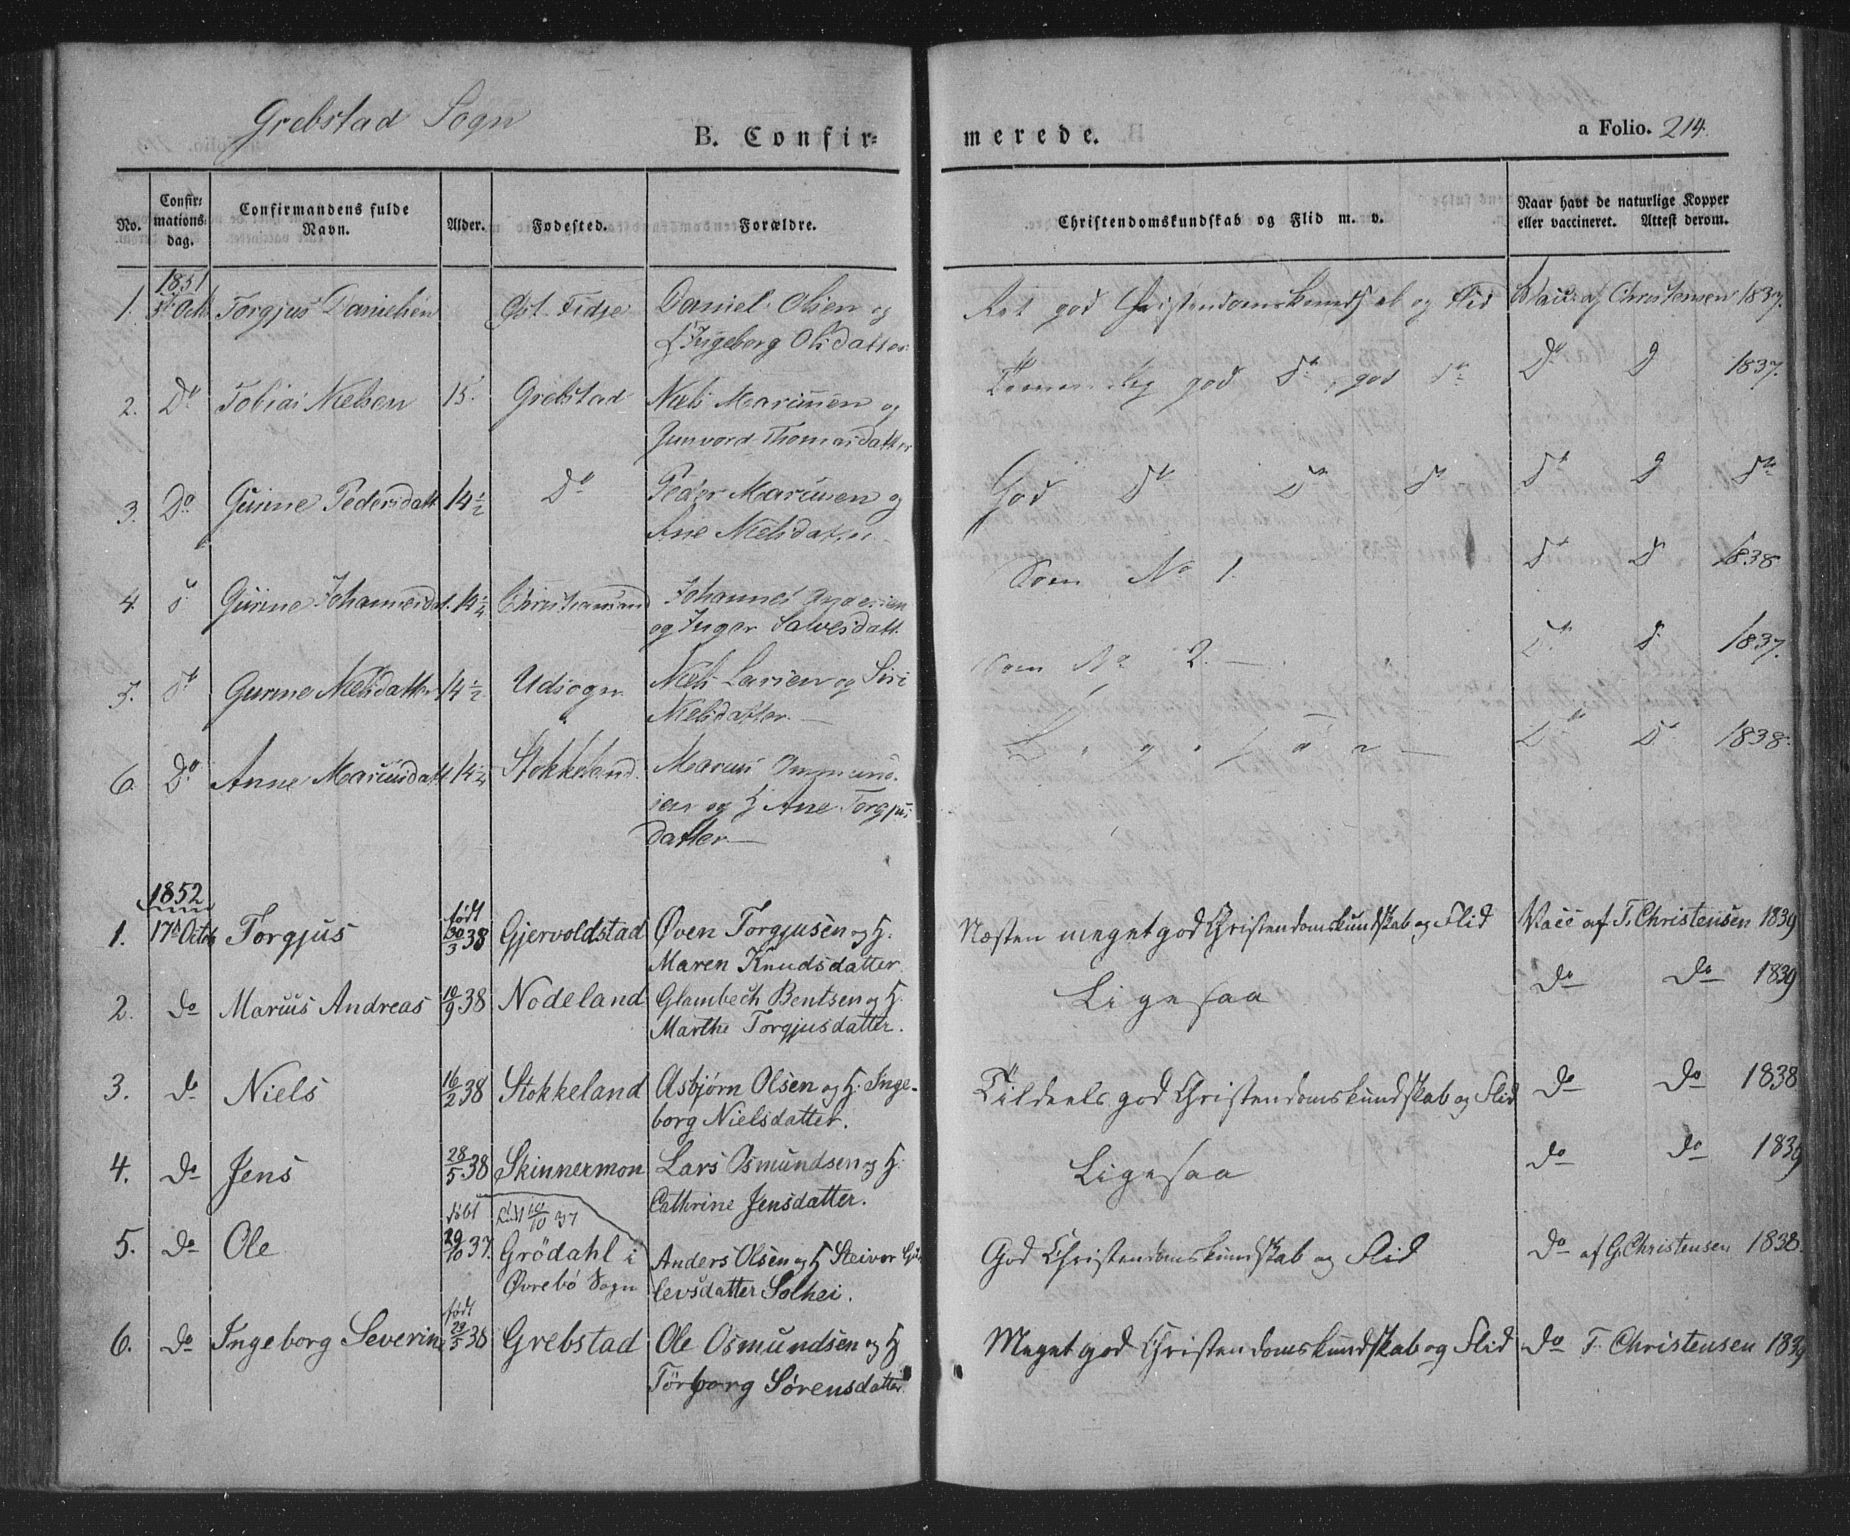 Grebstad Sogn
B. Confir-
merede.
a Folio. 214.
No. Confirmations dag. Confirmandens fulde Navn. Alder. Fødested. Forældre. Christendomskundskab og Flid m. v. Naar havt de naturlige Kopper eller vaccineret. Attest derom.
1851
1. 5te Octb Torgjus Danielsen Øst. Fidje Daniel Olsen og Ret god Christendomskundskab og Flid Vacc af Christensen 1837.
Ingeborg Olsdatter
2. Do Tobias Nielsen 15. Grebstad Niels Mariusen og god Do, god Do Do D 1837.
Gunvord Thomasdatter
3. Do Gurine Pedersdatt 14 1/2 Do Peder Mariusen og God Do Do Do Do D Do
Ane Nielsdatter
4. Do Gurine Johannesdat. 14 1/4 Christiansand Johannes Andersen Som No 1. Do D 1838
og Inger Salvesdatt.
5. Do Gurine Nielsdatter 14 1/2 Udsogn Niels Larsen og Siri Som No 2. — Do D. 1837.
Nielsdatter. —
6. Do Anne Mariusdatt 14 1/4 Stokkeland. Marius Do D. 1838.
sen og H Ane Torgjus
datter —
1852
1. 17de Octob Torgjus født 30/3 38 Gjervoldstad Øven Torgjusen og H. Næsten meget god Christendomskundskab og Flid Vacc af T. Christensen 1839
Maren Knudsdatter
2. Do Marius Andreas 10/9 38 Nodeland Glambech Bentsen og H. Ligesaa Do Do 1839
Marthe Torgjusdatter.
3. Do Niels 16/2 38 Stokkeland Asbjørn Olsen og H. Inge- Tildeels god Christendomskundskab og Flid Do Do 1838
borg Nielsdatter.
4. Do Jens 28/5 38 Skinnermon Lars Osmundsen og H. Ligesaa Do Do 1839
Cathrine Jensdatter.
5. Do Ole født 29/10 37. Grödahl i Anders Olsen og H Steivor God Christendomskundskab og Flid Do af G. Christensen 1838.
Øvrebö Sogn levsdatter Solhei.
6. Do Ingeborg Severine født 29/5 38 Grebstad Ole Osmundsen og H Meget god Christendomskundskab og Flid Do T. Christensen 1839
Törborg Sörensdatter